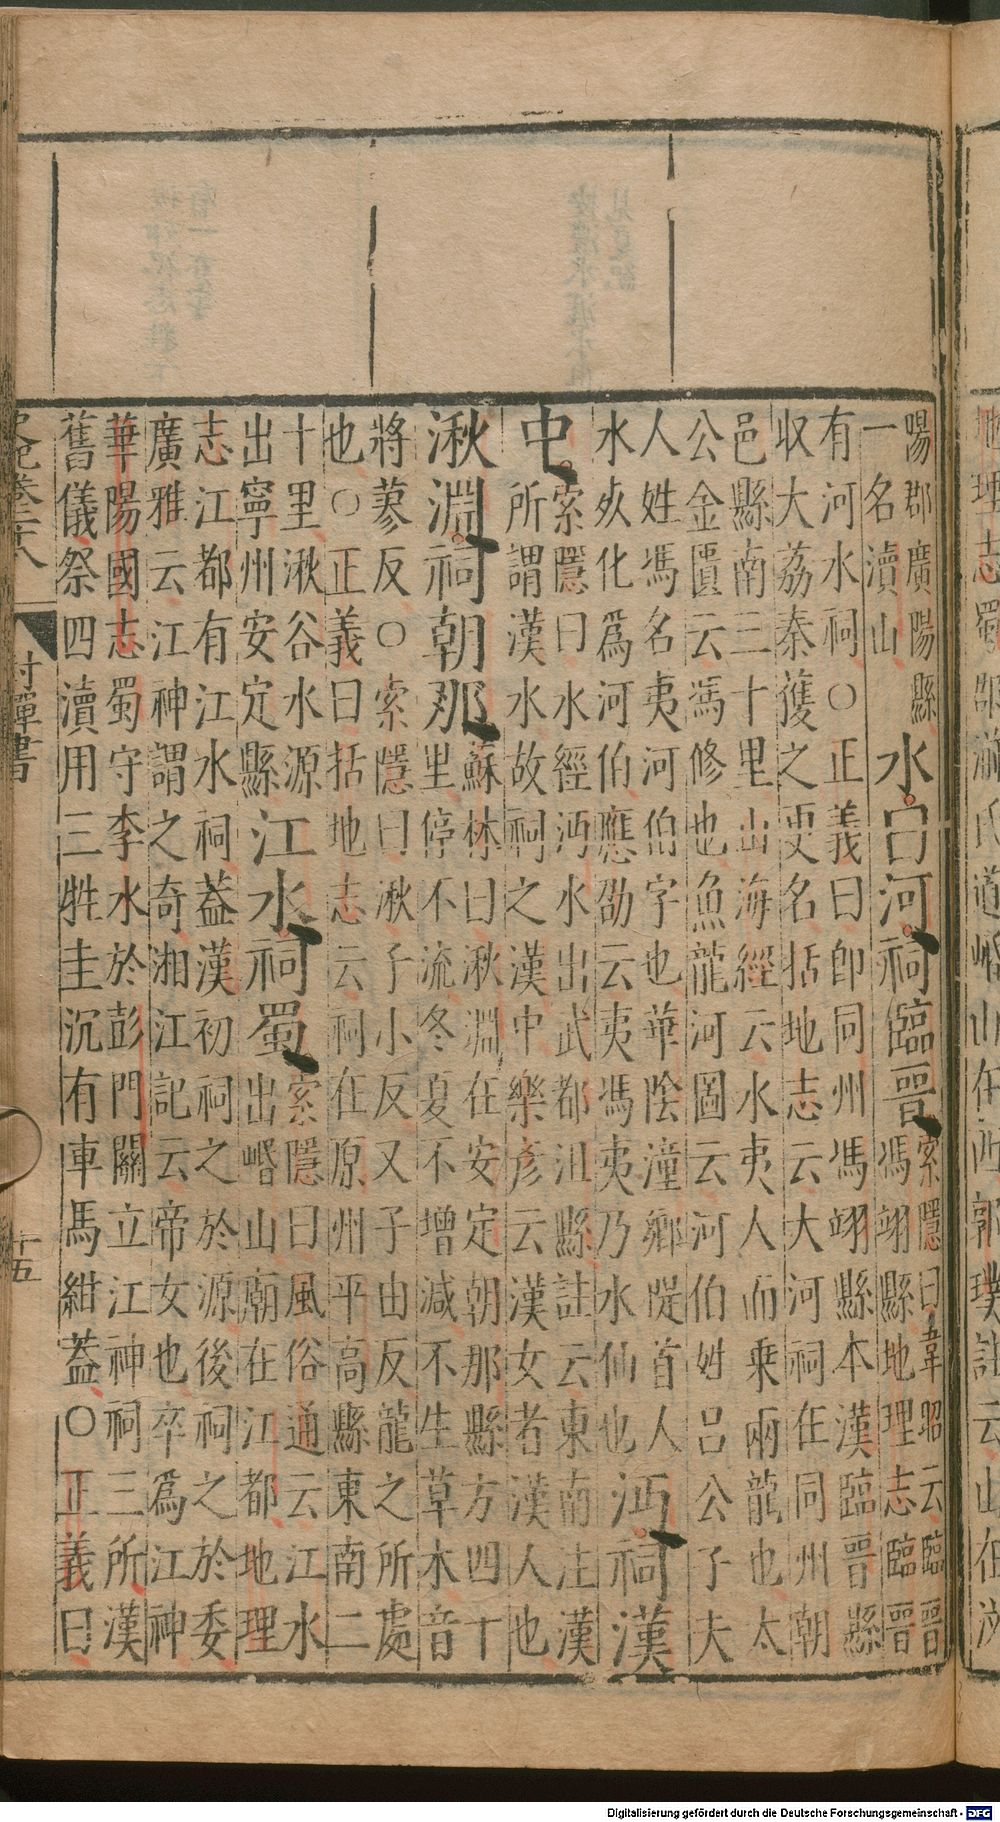 地理志蜀郡湔氏道㟭山在西郭璞註云山在汶
陽郡廣陽縣
一名瀆山
水曰河祠臨晉
索隱曰韋昭云臨晉
馮翊縣地理志臨晉
有河水祠○正義曰即同州馮翊縣本漢臨晉縣
收大荔秦獲之更名括地志云大河祠在同州朝
邑縣南三十里山海經云水夷人而乘兩龍也太
公金匱云馮修也魚龍河圖云河伯姓呂公子夫
人姓馮名夷河伯字也華陰潼鄉隄首人
水死化為河伯應劭云夷馮夷乃水仙也
沔祠漢
中
索隱曰水經沔水出武都沮縣註云東南注漢
所謂漢水故祠之漢中樂彥云漢女者漢人也
湫淵祠朝那
蘇林曰湫淵在安定朝那縣方四十
里停不流冬夏不增減不生草木音
將蓼反○索隱曰湫子小反又子由反龍之所處
也○正義曰括地志云祠在原州平高縣東南二
十里湫谷水源
出寧州安定縣
江水祠蜀
索隱曰風俗通云江水
出㟭山廟在江都地理
志江都有江水祠蓋漢初祠之於源後祠之於委
廣雅云江神謂之奇湘江記云帝女也卒為江神
華陽國志蜀守李水於彭門闕立江神祠三所漢
舊儀祭四瀆用三牲圭沉有車馬紺蓋○正義曰
史記卷二十八 封禪書 十五
Digitalisierung gefördert durch die Deutsche Forschungsgemeinschaft - DFG